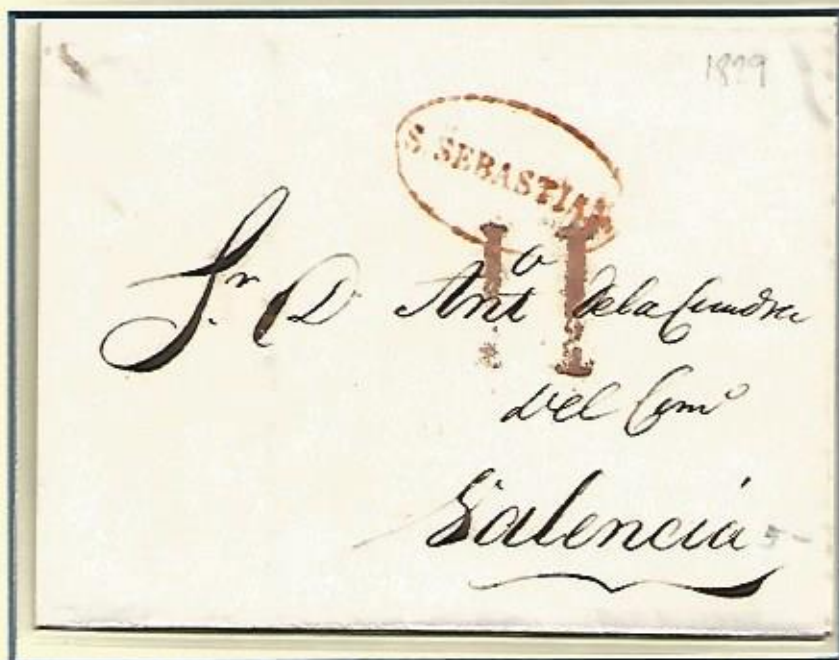 1829
S. SEBASTIAN
11
Sr. D. Anto. de la Cuadra
del Como
Valencia